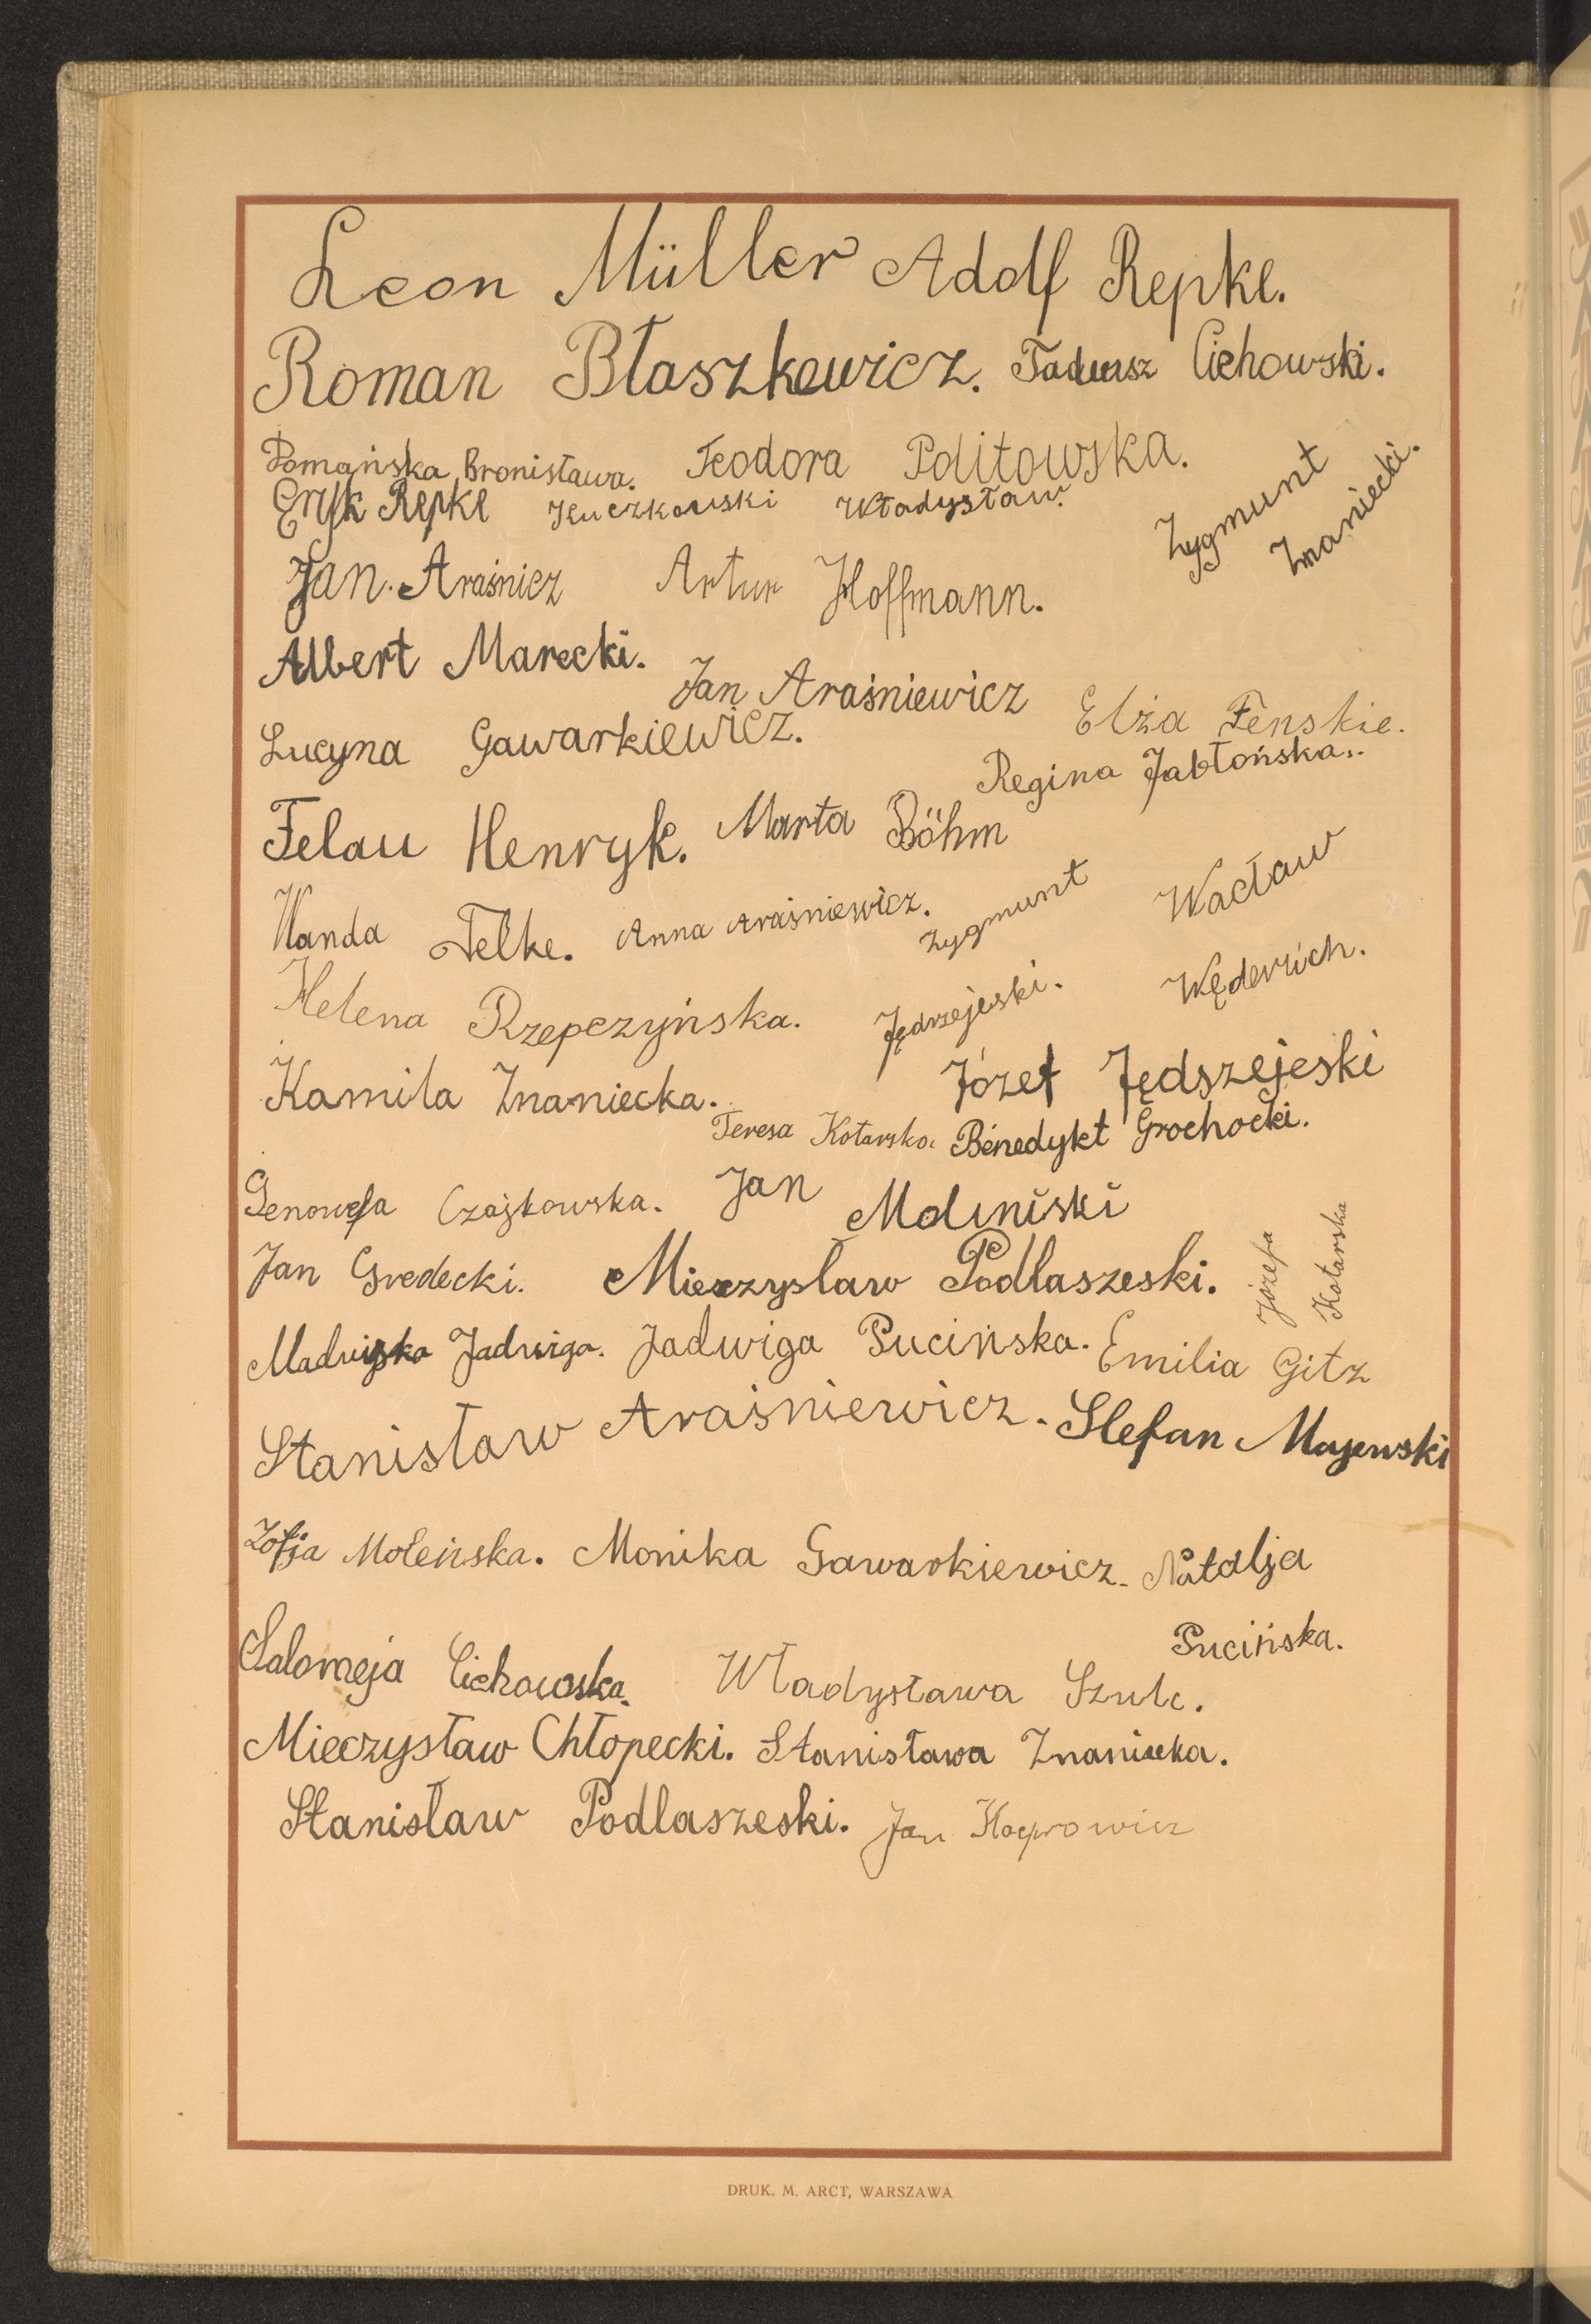 Leon Müller Adolf Repke.
Roman Błaszkewicz. Tadeusz Cichowski.
Pomańska Bronisława. Teodora Politowska.
Zygmunt Znaniecki.
Eryk Repke Kuczkowski Władysław.
Jan Araśnicz Artur Hoffmann.
Albert Marecki. Jan Araśniewicz Elża Fenskie.
Lucyna Gawarkiewicz. Regina Jabłońska..
Felau Henryk. Marta Böhm
Wanda Felke. Anna Araśniewicz. Zygmunt Jędrzejeski.
Wacław Węderich.
Helena Rzepczyńska.
Kamila Znaniecka. Józef Jędszejeski
Teresa Kotarska. Benedykt Grochocki.
Genowefa Czajkowska. Jan Moliniski
Jan Gredecki. Mieczyslaw Podlaszeski. Józefa Kotarska
Jadwiga. Jadwiga Pucińska. Emilia Gitz
Stanisław Araśniewicz. Stefan Majewski
Zofja Moleńska. Monika Gawarkiewicz. Natalja Pucińska.
Salomeja Cichowska. Władysława Szulc.
Mieczysław Chłopecki. Stanisława Znaniecka.
Stanislaw Podlaszeski. Jan
DRUK. M. ARCT, WARSZAWA